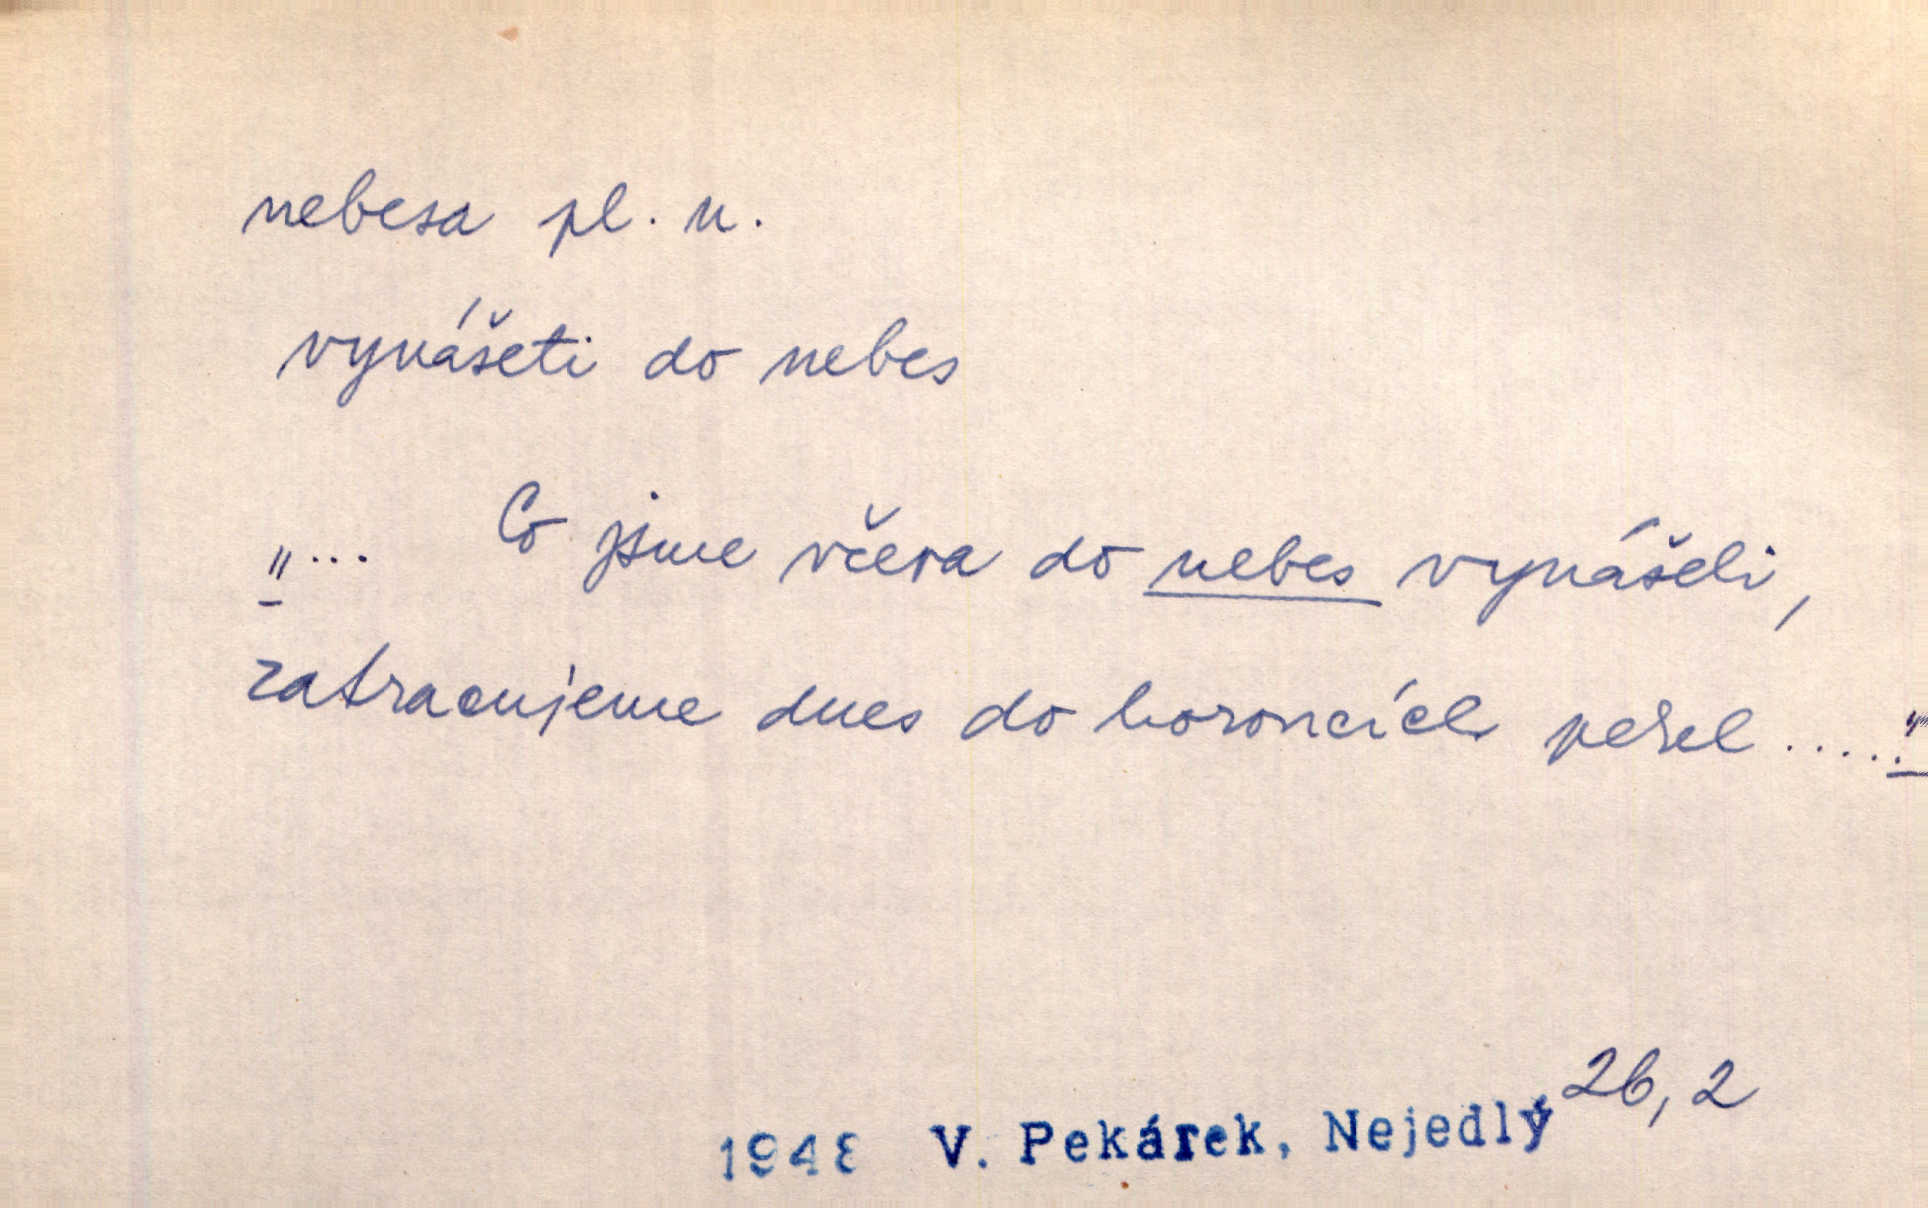 nebesa pl. n.
vynášeti do nebes
„... Co jsme včera do nebes vynášeli,
zatracujeme dnes do horoucích pekel ....."
1948 V. Pekárek, Nejedlý 26, 2